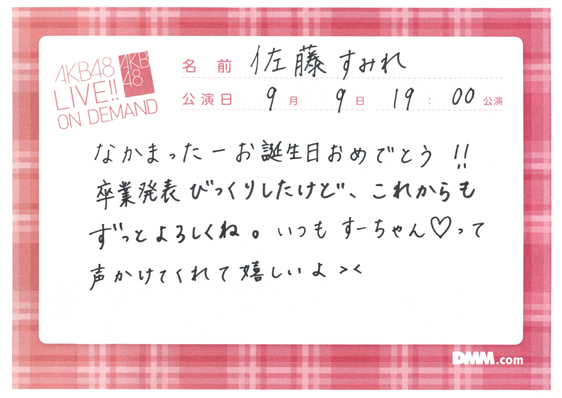 AKB48
LIVE!!
ON DEMAND
AKB
48
名前 佐藤すみれ
公演日 9月 9日 19:00公演
なかまったーお誕生日おめでとう!!
卒業発表びっくりしたけど、これからも
ずっとよろしくね。いつもすーちゃん♡って
声かけてくれて嬉しいよ><
DMM.com